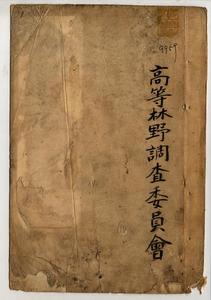 9959
高等林野調査委員會